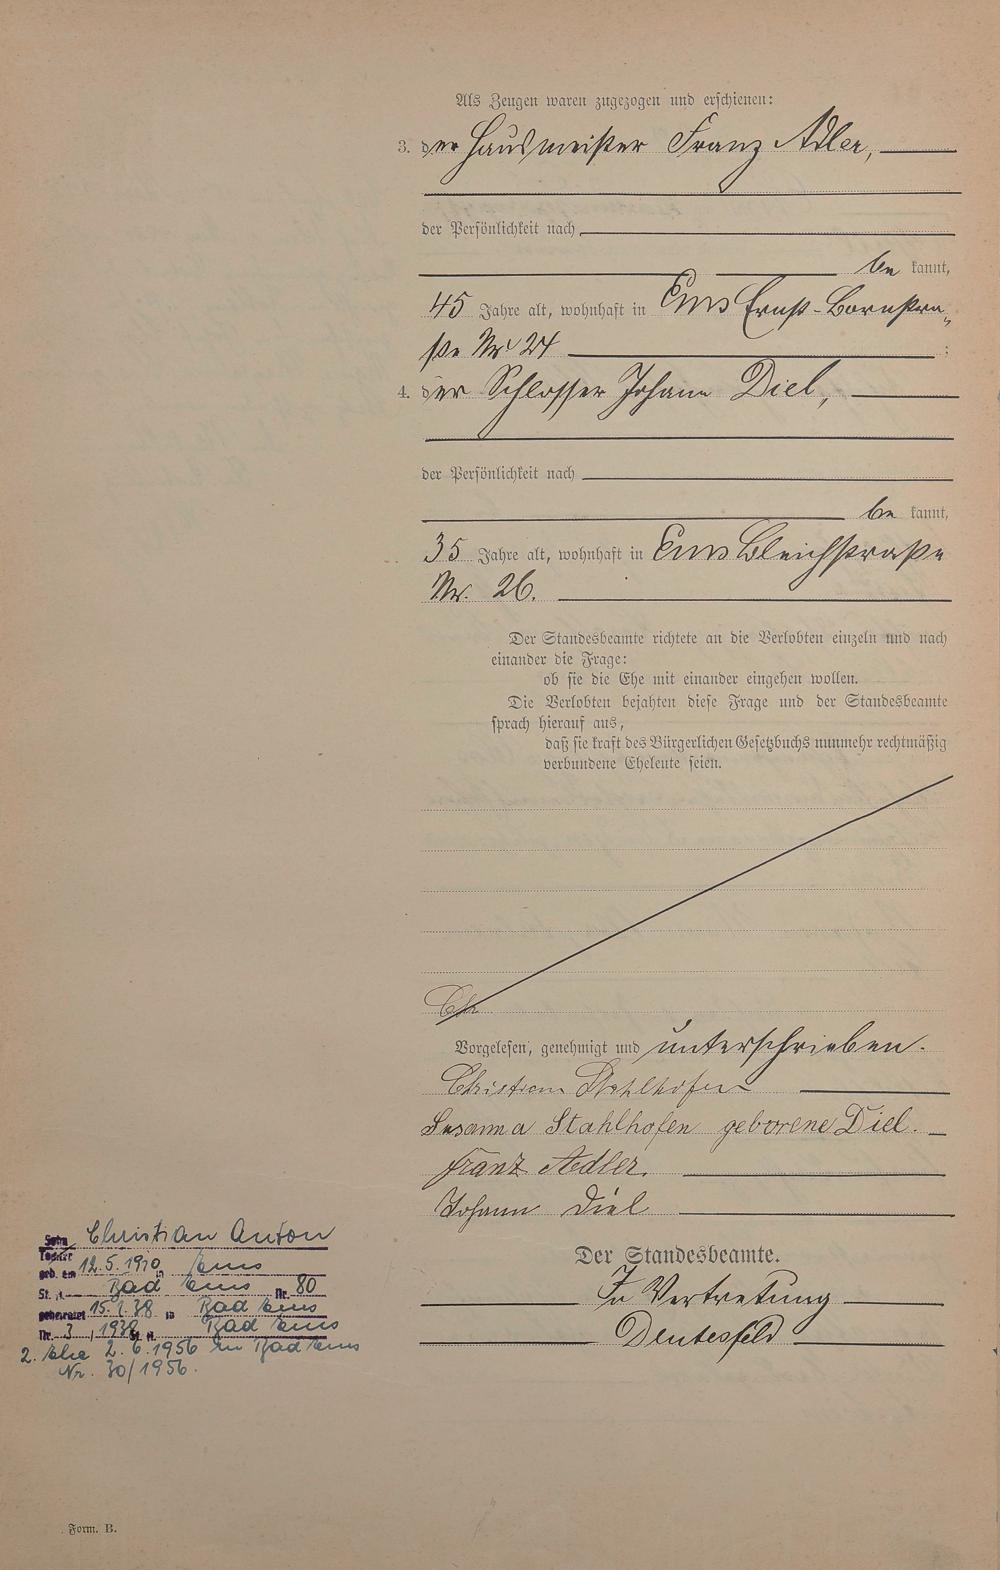 Als Zeugen waren zugezogen und erschienen:
3. der Hausmeister Franz Adler,
der Persönlichkeit nach
be kannt,
45 Jahre alt, wohnhaft in Ems Ernst-Bornstra„
ße Nr 24 ;
4. der Schlosser Johann Diel,
der Persönlichkeit nach
be kannt,
35 Jahre alt, wohnhaft in Ems Bleichstraße
Nr. 26.
Der Standesbeamte richtete an die Verlobten einzeln und nach
einander die Frage:
ob sie die Ehe mit einander eingehen wollen.
Die Verlobten bejahten diese Frage und der Standesbeamte
sprach hierauf aus,
daß sie kraft des Bürgerlichen Gesetzbuchs nunmehr rechtmäßig
verbundene Eheleute seien.
Vorgelesen, genehmigt und unterschrieben.
Christian Stahlhofen
Susanna Stahlhofen geborene Diel.
Franz Adler.
Johann Diel
Der Standesbeamte.
In Vertretung
Sohn Christian Anton
Tochter
geb. am 12.5.1910 in Ems
St. A. Bad Ems Nr. 80
geheiratet 15.1.38 in Bad Ems
Nr. 3, 1938 St. A. Bad Ems
2. Ehe 2.6.1956 in Bad Ems
Nr. 30/1956.
Form. B.